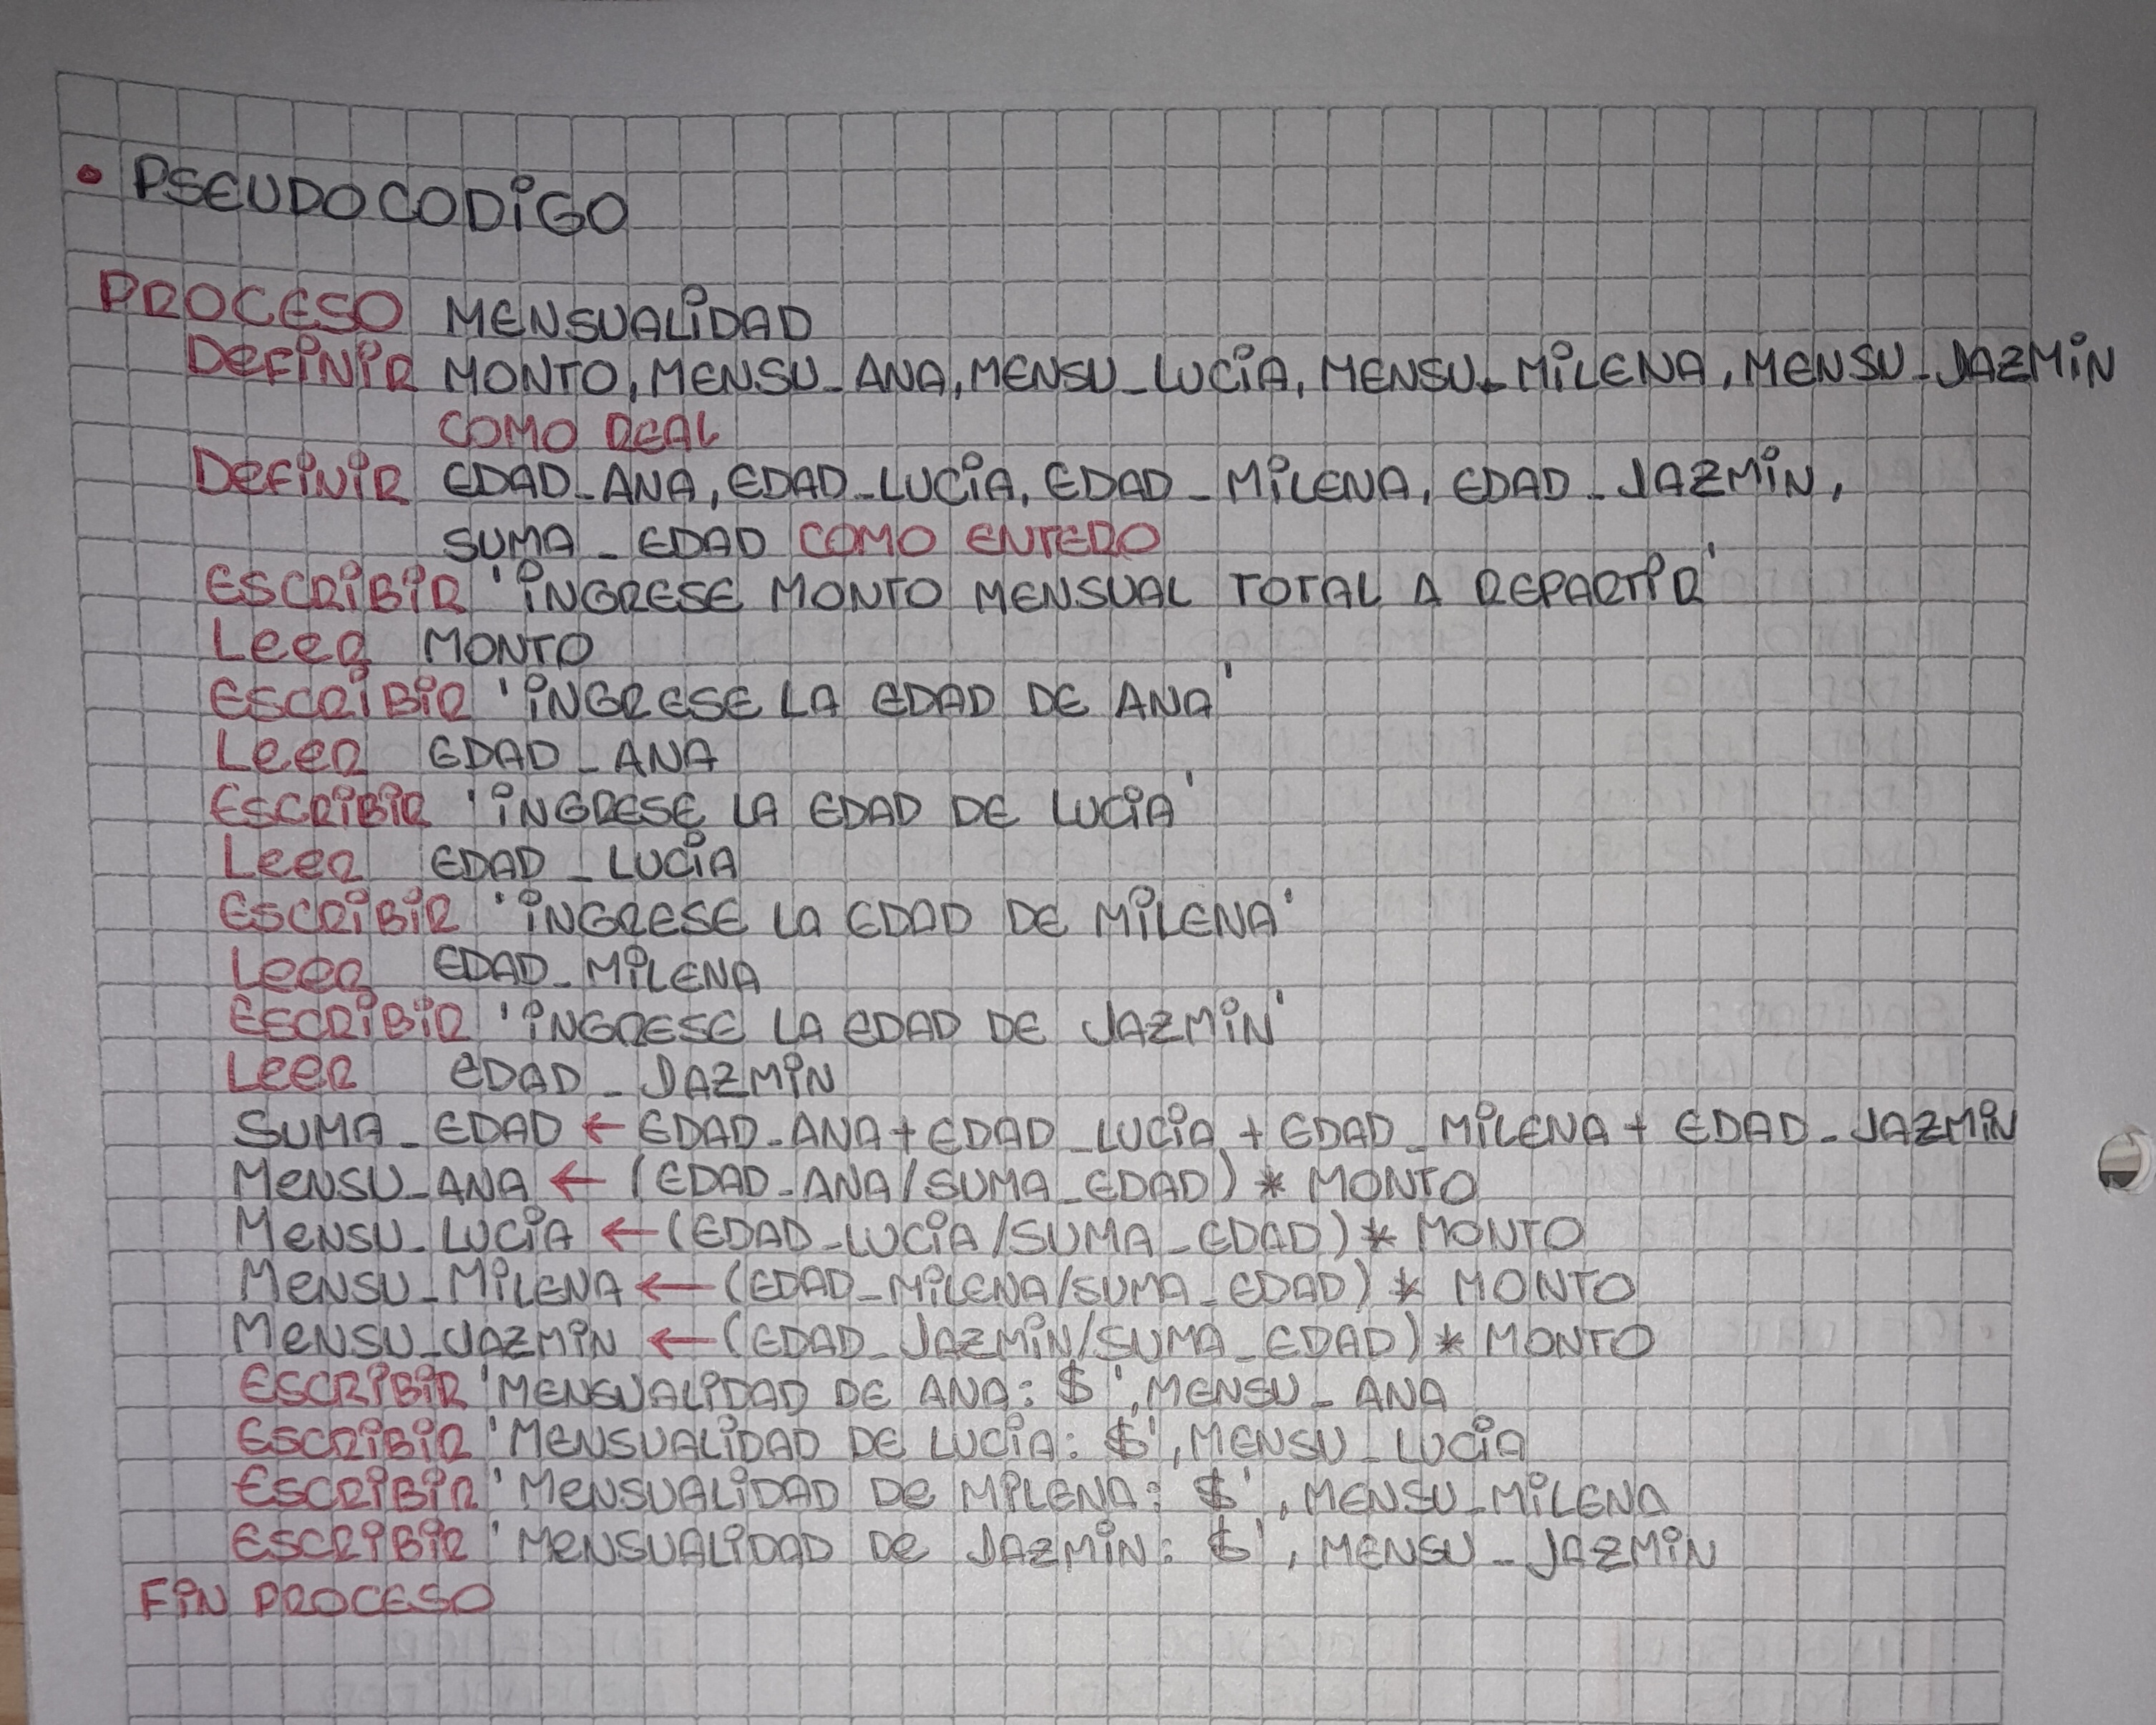 • PSEUDOCODIGO
PROCESO MENSUALIDAD
DEFINIR MONTO, MENSU_ANA, MENSU_LUCIA, MENSU_MILENA, MENSU_JAZMIN
COMO REAL
DEFINIR EDAD_ANA, EDAD_LUCIA, EDAD_MILENA, EDAD_JAZMIN,
SUMA_EDAD COMO ENTERO
ESCRIBIR 'INGRESE MONTO MENSUAL TOTAL A REPARTIR'
LEER MONTO
ESCRIBIR 'INGRESE LA EDAD DE ANA'
LEER EDAD_ANA
ESCRIBIR 'INGRESE LA EDAD DE LUCIA'
LEER EDAD_LUCIA
ESCRIBIR 'INGRESE LA EDAD DE MILENA'
LEER EDAD_MILENA
ESCRIBIR 'INGRESE LA EDAD DE JAZMIN'
LEER EDAD_JAZMIN
SUMA_EDAD ← EDAD_ANA + EDAD_LUCIA + EDAD_MILENA + EDAD_JAZMIN
MENSU_ANA ← (EDAD_ANA/SUMA_EDAD) * MONTO
MENSU_LUCIA ← (EDAD_LUCIA/SUMA_EDAD) * MONTO
MENSU_MILENA ← (EDAD_MILENA/SUMA_EDAD) * MONTO
MENSU_JAZMIN ← (EDAD_JAZMIN/SUMA_EDAD) * MONTO
ESCRIBIR 'MENSUALIDAD DE ANA: $', MENSU_ANA
ESCRIBIR 'MENSUALIDAD DE LUCIA: $', MENSU_LUCIA
ESCRIBIR 'MENSUALIDAD DE MILENA: $', MENSU_MILENA
ESCRIBIR 'MENSUALIDAD DE JAZMIN: $', MENSU_JAZMIN
FIN PROCESO